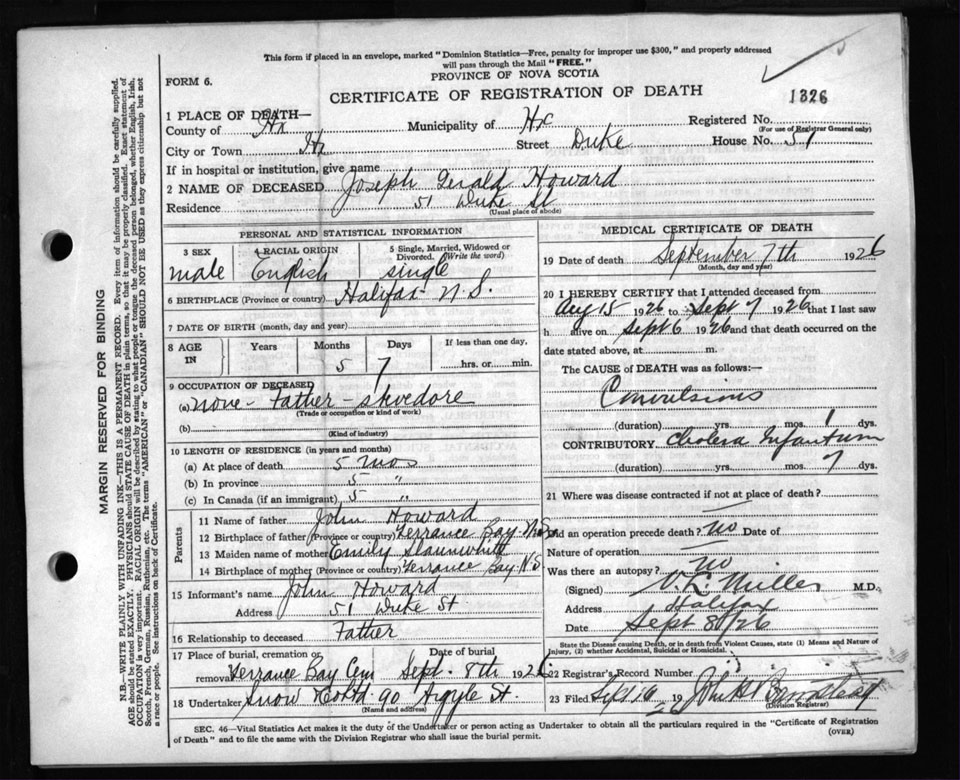 This form if placed in an envelope, marked "Dominion Statistics—Free, penalty for improper use $300," and properly addressed
will pass through the Mail "FREE."
PROVINCE OF NOVA SCOTIA
FORM 6.
CERTIFICATE OF REGISTRATION OF DEATH
1326
1 PLACE OF DEATH—
County of Hx Municipality of Hx Registered No.
(For use of Registrar General only)
City or Town Hx Street Duke House No. 51
If in hospital or institution, give name
2 NAME OF DECEASED Joseph Gerald Howard
Residence 51 Duke St
(Usual place of abode)
PERSONAL AND STATISTICAL INFORMATION
3 SEX 4 RACIAL ORIGIN 5 Single, Married, Widowed or Divorced. (Write the word)
male English single
6 BIRTHPLACE (Province or country) Halifax N.S.
7 DATE OF BIRTH (month, day and year)
8 AGE IN Years Months Days If less than one day,
5 7 hrs. or min.
9 OCCUPATION OF DECEASED
(a) none - Father - stevedore
(Trade or occupation or kind of work)
(b)
(Kind of industry)
10 LENGTH OF RESIDENCE (in years and months)
(a) At place of death 5 mos
(b) In province 5 "
(c) In Canada (if an immigrant) 5 "
Parents
11 Name of father John Howard
12 Birthplace of father (Province or country) Terrance Bay N.S.
13 Maiden name of mother Emily Slaunwhite
14 Birthplace of mother (Province or country) Terrance Bay N.S
15 Informant's name John Howard
Address 51 Duke St.
16 Relationship to deceased Father
17 Place of burial, cremation or removal Date of burial
Terrance Bay Cem Sept. 8th 1926
18 Undertaker Snow & Co Ltd 90 Argyle St.
(Name and address)
MEDICAL CERTIFICATE OF DEATH
19 Date of death September 7th 1926
(Month, day and year)
20 I HEREBY CERTIFY that I attended deceased from
Aug 15 1926 to Sept 7 1926 that I last saw
h alive on Sept 6 1926 and that death occurred on the
date stated above, at m.
The CAUSE of DEATH was as follows:—
Convulsions
(duration) yrs. mos. 1 dys.
CONTRIBUTORY Cholera Infantum
(duration) yrs. mos. 7 dys.
21 Where was disease contracted if not at place of death?
Did an operation precede death? no Date of
Nature of operation
Was there an autopsy? no
(Signed) Miller M.D.
Address Halifax
Date Sept 8/26
State the Disease causing Death, or in death from Violent Causes, state (1) Means and Nature of
Injury, (2) whether Accidental, Suicidal or Homicidal.
22 Registrar's Record Number
23 Filed Sept 19 John
(Division Registrar)
SEC. 46—Vital Statistics Act makes it the duty of the Undertaker or person acting as Undertaker to obtain all the particulars required in the "Certificate of Registration
of Death" and to file the same with the Division Registrar who shall issue the burial permit. (OVER)
MARGIN RESERVED FOR BINDING
N.B.—WRITE PLAINLY WITH UNFADING INK—THIS IS A PERMANENT RECORD. Every item of information should be carefully supplied.
AGE should be stated EXACTLY. PHYSICIANS should STATE CAUSE OF DEATH in plain terms, so that it may be properly classified. Exact statement of
OCCUPATION is very important. RACIAL ORIGIN will be described by stating to what people or tongue the deceased person belonged, whether English, Irish,
Scotch, French, German, Russian, Ruthenian, etc. The terms "AMERICAN" or "CANADIAN" SHOULD NOT BE USED as they express citizenship but not
a race or people. See instructions on back of Certificate.